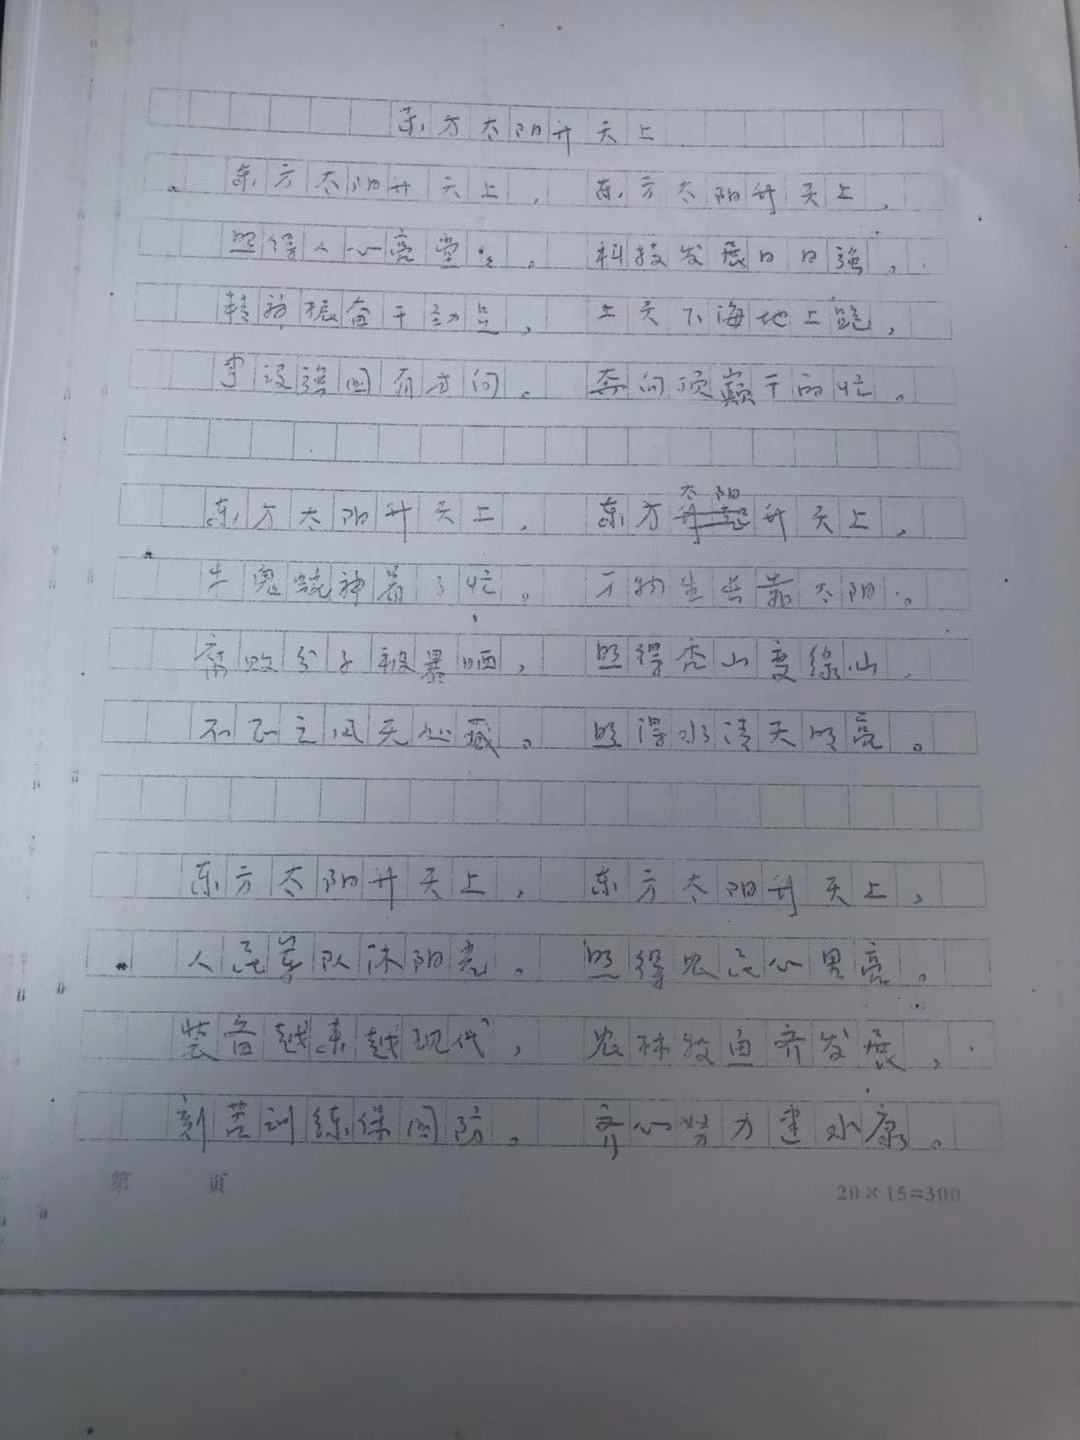 东方太阳升天上
东方太阳升天上， 东方太阳升天上，
照得人心亮堂堂。 科技发展日日强。
精神振奋干劲足， 上天下海地上跑，
建设强国有方向。 奔向顶巅干的忙。
东方太阳升天上， 东方太阳升天上，
牛鬼蛇神着了忙。 万物生长靠太阳。
腐败分子被暴晒， 照得秃山变绿山，
不正之风无处藏。 照得水清天明亮。
东方太阳升天上， 东方太阳升天上，
人民军队沐阳光。 照得农民心里亮。
装备越来越现代， 农林牧渔齐发展，
刻苦训练保国防。 齐心努力建小康。
第 页 20×15=300